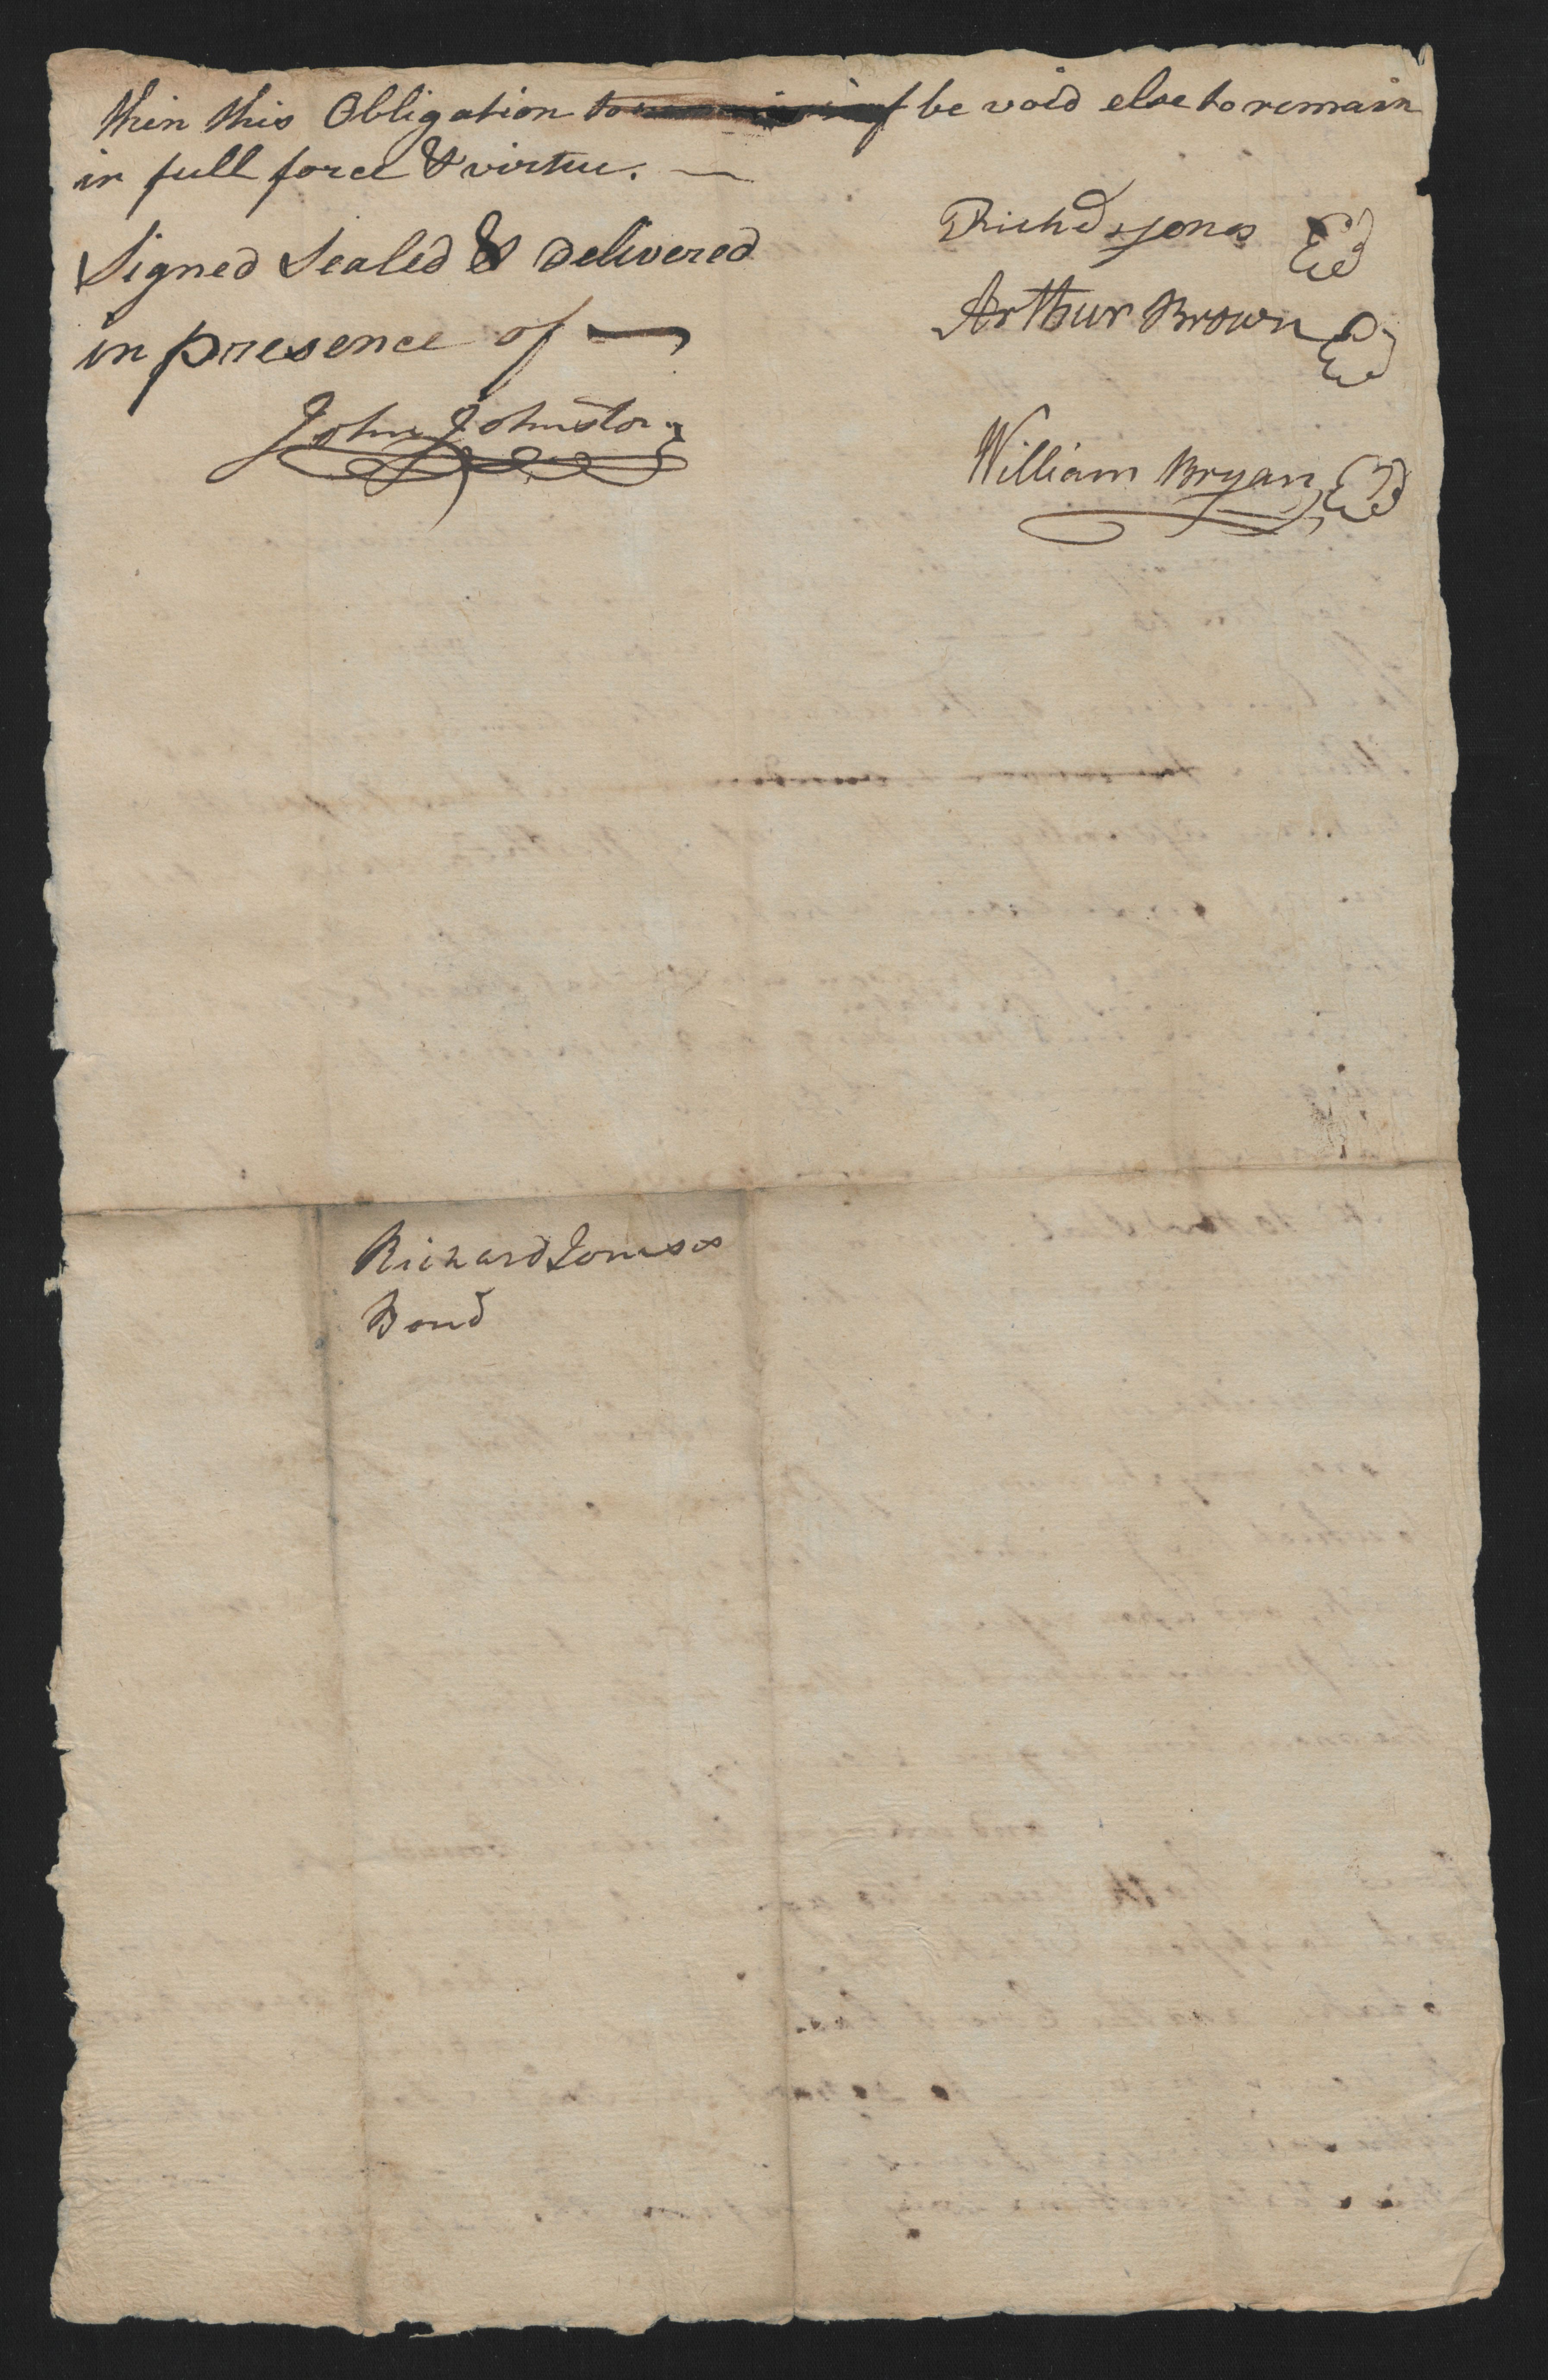 then this Obligation to be void else to remain
in full force & virtue. —
Signed Sealed & Delivered
in presence of —
John Johnston
Richd. Jones
Arthur Brown
William Bryan
Richard Joneses
Bond